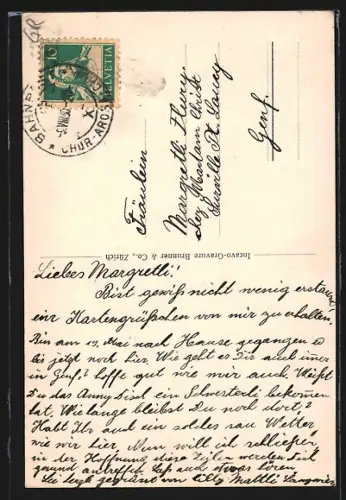 10
HELVETIA
BAHNP
CHUR-AROSA
Fräulein
Margretli Flury
Jncavo-Gravure Brunner & Co., Zürich
Genf.
Liebes Margretli!
Bist gewiß nicht wenig erstaunt
ein Kartengrüßchen von mir zu erhalten,
Bin am 19. Mai nach Hause gegangen
bis jetzt noch hier. Wie geht es Dir auch immer
in Genf, hoffe gut wie mir auch. Weißt
Du das Anny Disel ein Schwesterli bekommen
hat. Wie lange bleibst Du noch dort?
Habt Ihr auch ein solches sau Wetter
wie wir hier. Nun will ich schließen
in der Hoffnung diese Zeilen werden Dich
gesund antreffen. Laß auch etwas hören
Sei herzl. gegrüsst von Lilly Mattli Langwies